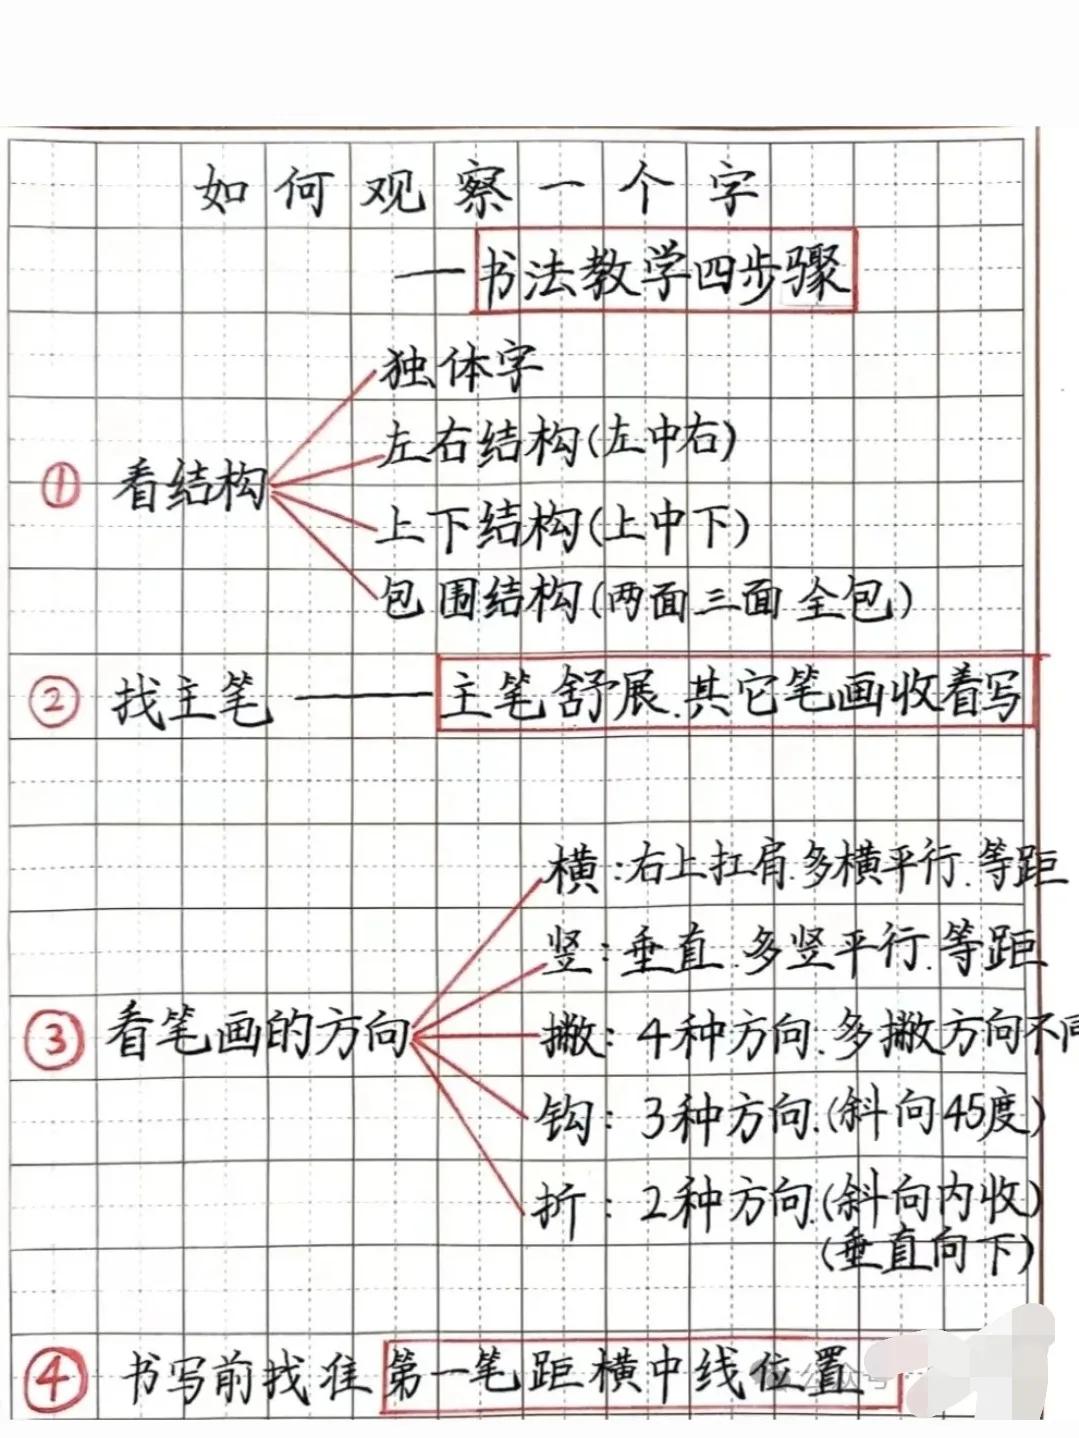 如何观察一个字
—书法教学四步骤
① 看结构
独体字
左右结构(左中右)
上下结构(上中下)
包围结构(两面三面全包)
② 找主笔——主笔舒展.其它笔画收着写
③ 看笔画的方向
横:右上扛肩.多横平行.等距
竖:垂直.多竖平行.等距
撇:4种方向.多撇方向不同
钩:3种方向.(斜向45度)
折:2种方向.(斜向内收)
(垂直向下)
④ 书写前找准第一笔距横中线位置
公众号